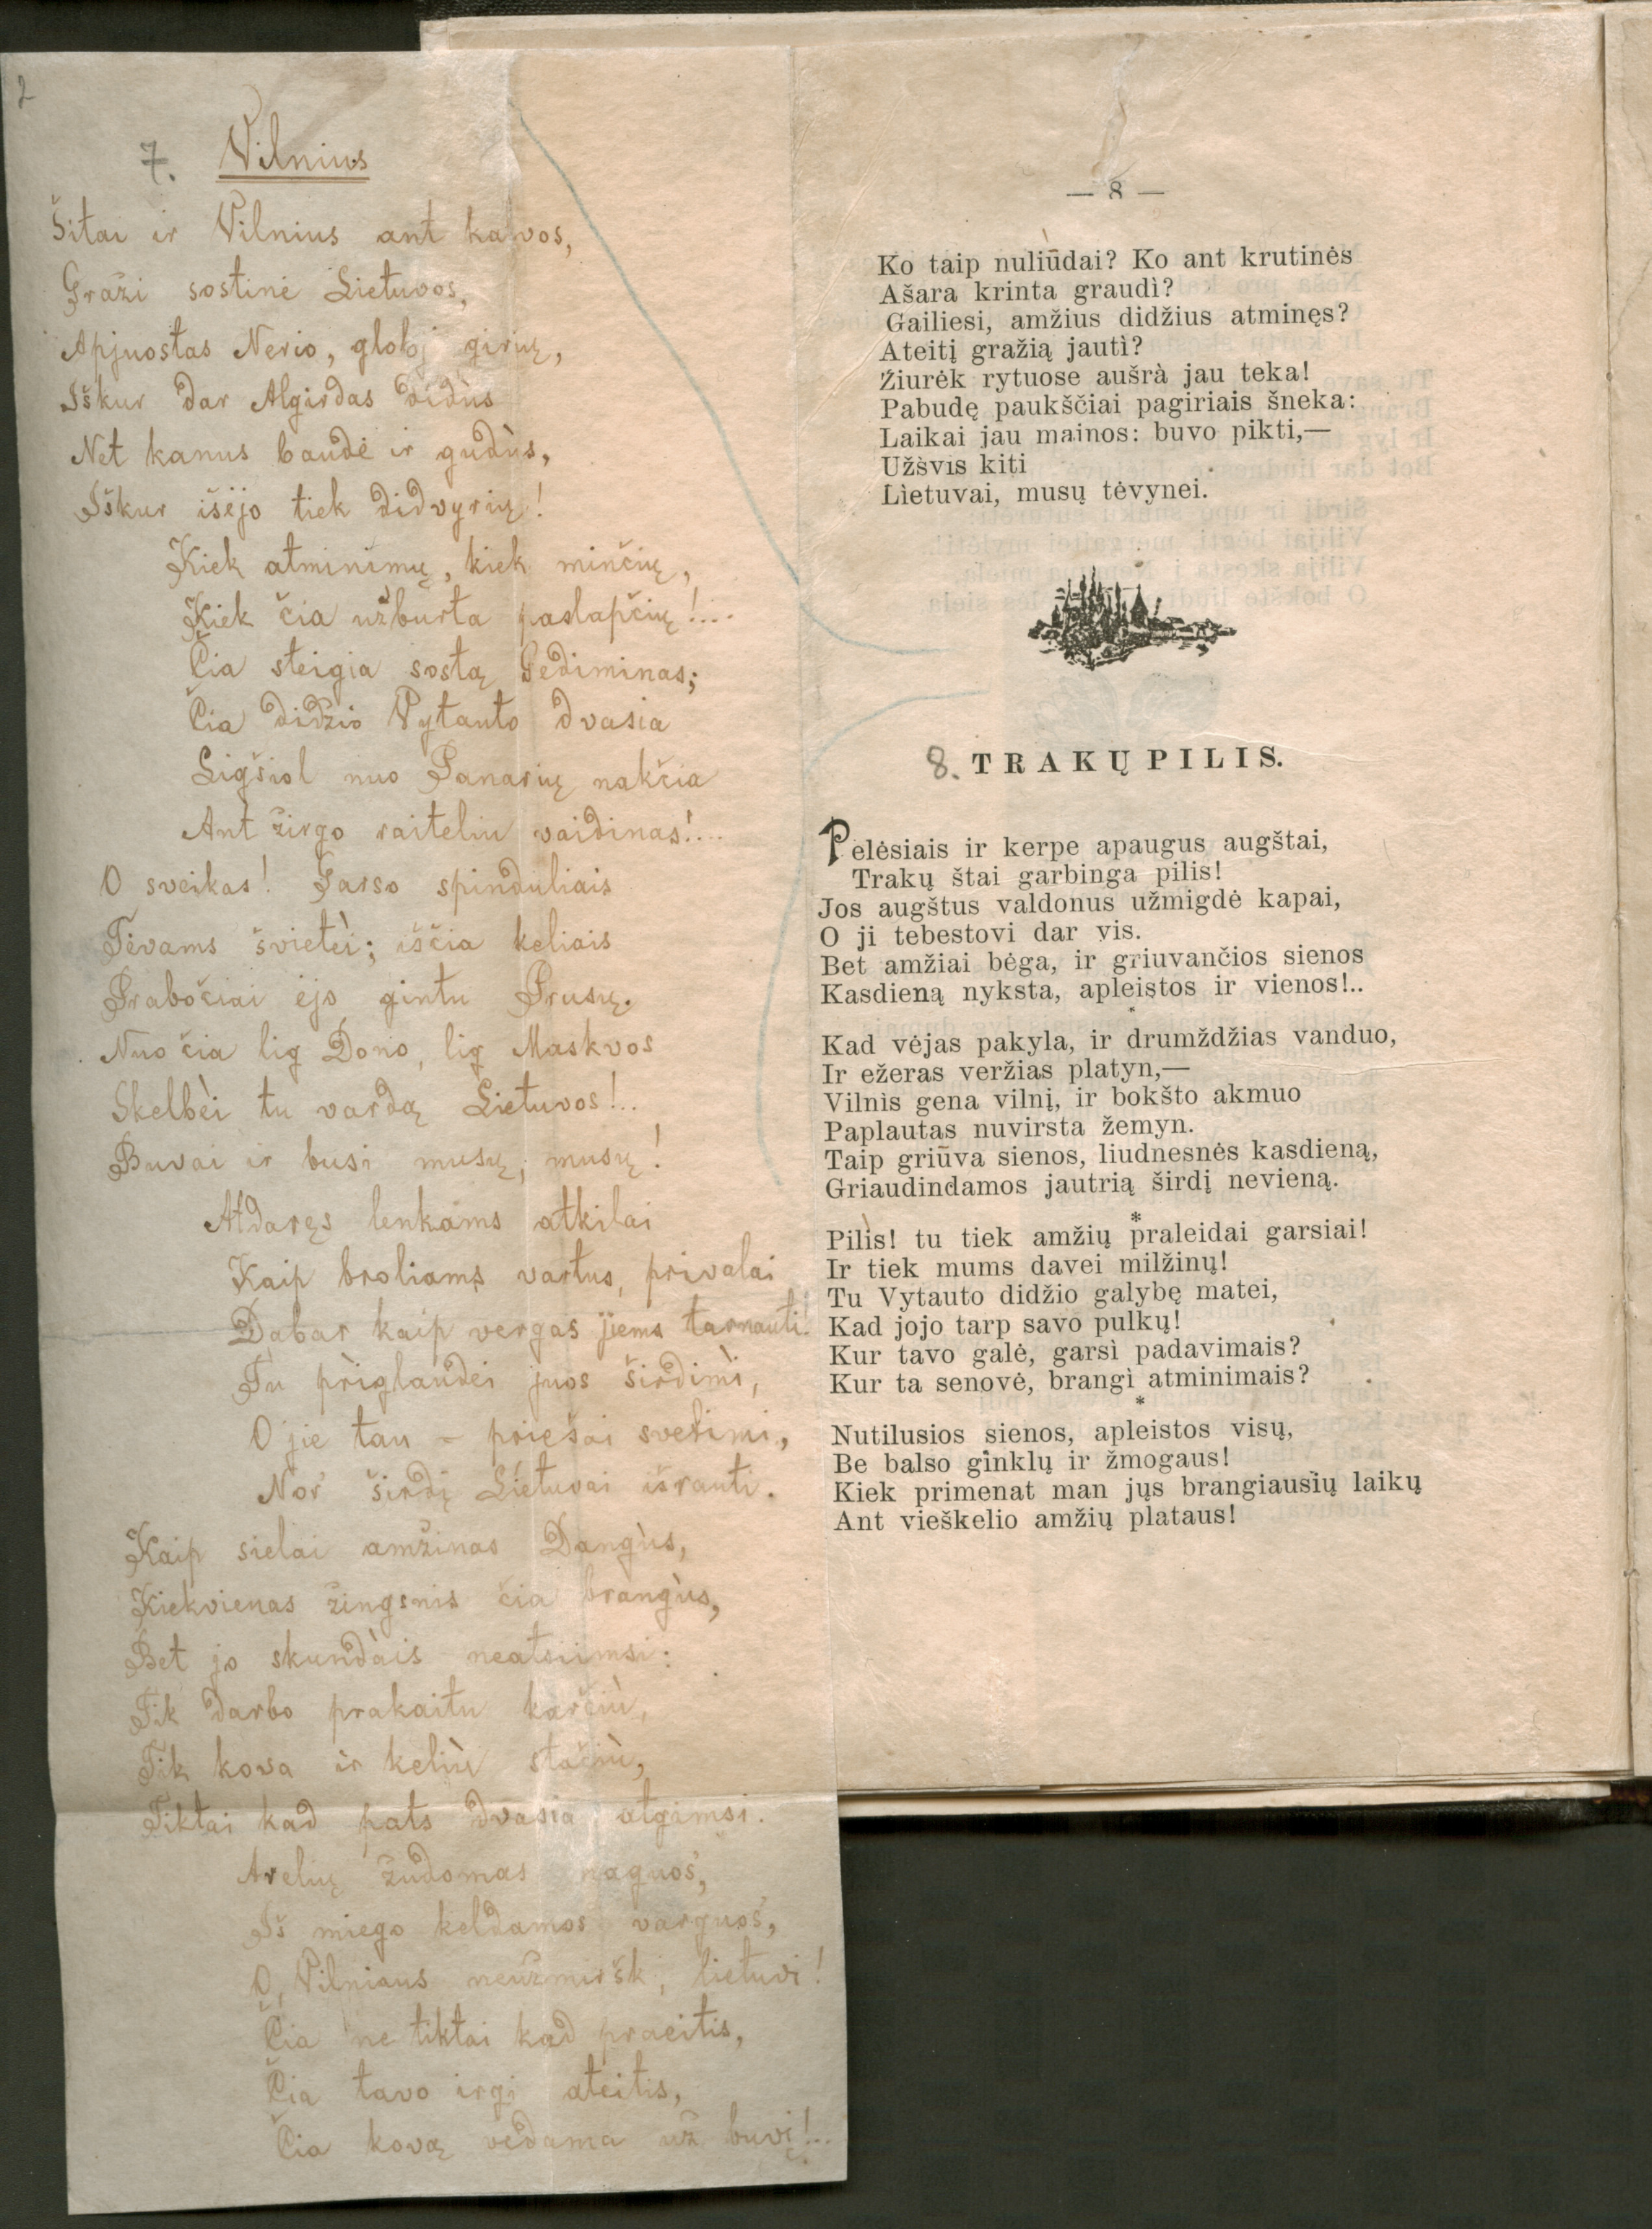 2
7. Vilnius
Šitai ir Vilnius ant kalvos,
Graži sostinė Lietuvos,
Apjuostas Nerio, globoj girių,
Iškur dar Algirdas didùs
Net kanus baudė ir gudùs,
Iškur išėjo tiek didvyrių!
Kiek atminimų, kiek minčių,
Kiek čia užburta paslapčių!...
Čia steigia sostą Gediminas;
Čia didžio Vytauto dvasia
Ligšiol nuo Panarių nakčia
Ant žirgo raiteliu vaidinas!...
O sveikas! Garso spinduliais
Tėvams švietėi; iščia keliais
Prabočiai ėjo gintu Prusų.
Nuo čia lig Dono, lig Maskvos
Skelbėi tu vardą Lietuvos!..
Buvai ir busi musų, musų!
Atdaręs lenkams atkilai
Kaip broliams vartus, privalai
Dabar kaip vergas jiems tarnauti.
Tu priglaudei juos širdimi,
O jie tau – priešai svetimi,
Nor' širdį Lietuvai išrauti.
Kaip sielai amžinas Dangùs,
Kiekvienas žingsnis čia brangùs,
Bet jo skundàis neatsiimsi:
Tik darbo prakaitu karčiù,
Tik kova ir keliù stačiù,
Tiktai kad pats dvasia atgimsi.
Arelių žudomas naguos',
Iš miego keldamos' varguos',
O, Vilniaus neužmiršk, lietuvi!
Čia ne tiktai kad praeitis,
Čia tavo irgi ateitis,
Čia kovą vedama už buvį!...
— 8 —
Ko taip nuliūdai? Ko ant krutinės
Ašara krinta graudì?
Gailiesi, amžius didžius atminęs?
Ateitį gražią jauti?
Žiurėk rytuose aušrà jau teka!
Pabudę paukščiai pagiriais šneka:
Laikai jau mainos: buvo pikti,—
Užsvìs kiti
Lietuvai, musų tėvynei.
8. TRAKŲ PILIS.
Pelėsiais ir kerpe apaugus augštai,
Trakų štai garbinga pilis!
Jos augštus valdonus užmigdė kapai,
O ji tebestovi dar vis.
Bet amžiai bėga, ir griuvančios sienos
Kasdieną nyksta, apleistos ir vienos!..
*
Kad vėjas pakyla, ir drumždžias vanduo,
Ir ežeras veržias platyn,—
Vilnìs gena vilnį, ir bokšto akmuo
Paplautas nuvirsta žemyn.
Taip griūva sienos, liudnesnės kasdieną,
Griaudindamos jautrią širdį nevieną.
*
Pilìs! tu tiek amžių praleidai garsiai!
Ir tiek mums davei milžinų!
Tu Vytauto didžio galybę matei,
Kad jojo tarp savo pulkų!
Kur tavo galė, garsì padavimais?
Kur ta senovė, brangì atminimais?
*
Nutilusios sienos, apleistos visų,
Be balso ginklų ir žmogaus!
Kiek primenat man jųs brangiausių laikų
Ant vieškelio amžių plataus!